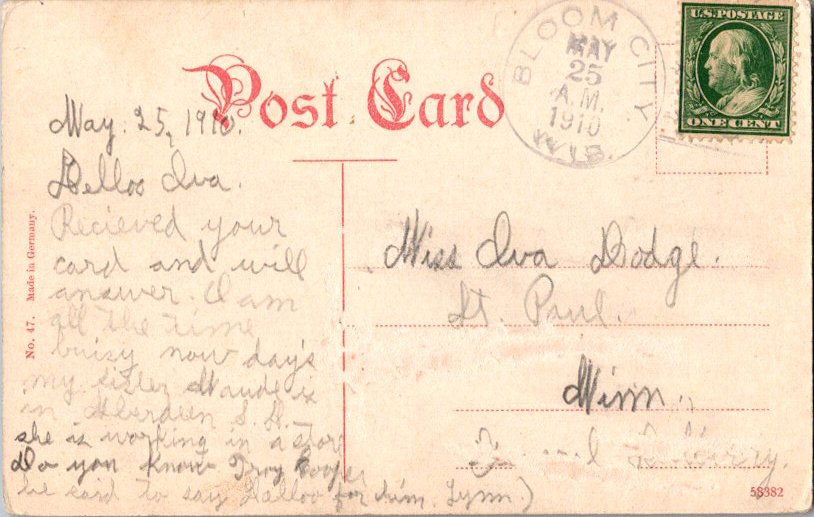 Post Card
BLOOM CITY
MAY
25
A.M.
1910
WIS.
U.S. POSTAGE
ONE CENT
May. 25, 1910.
Helloo Iva.
Recieved your
card and will
answer. I am
all the time
buisy now day's
my sister Maude is
in Aberdeen S.
she is working in a store
Do you know Troy Cooper
he said to say Helloo for him. Lynn.)
Miss Iva Dodge.
St. Paul.
Minn.
Delivery.
No. 47. Made in Germany.
58382